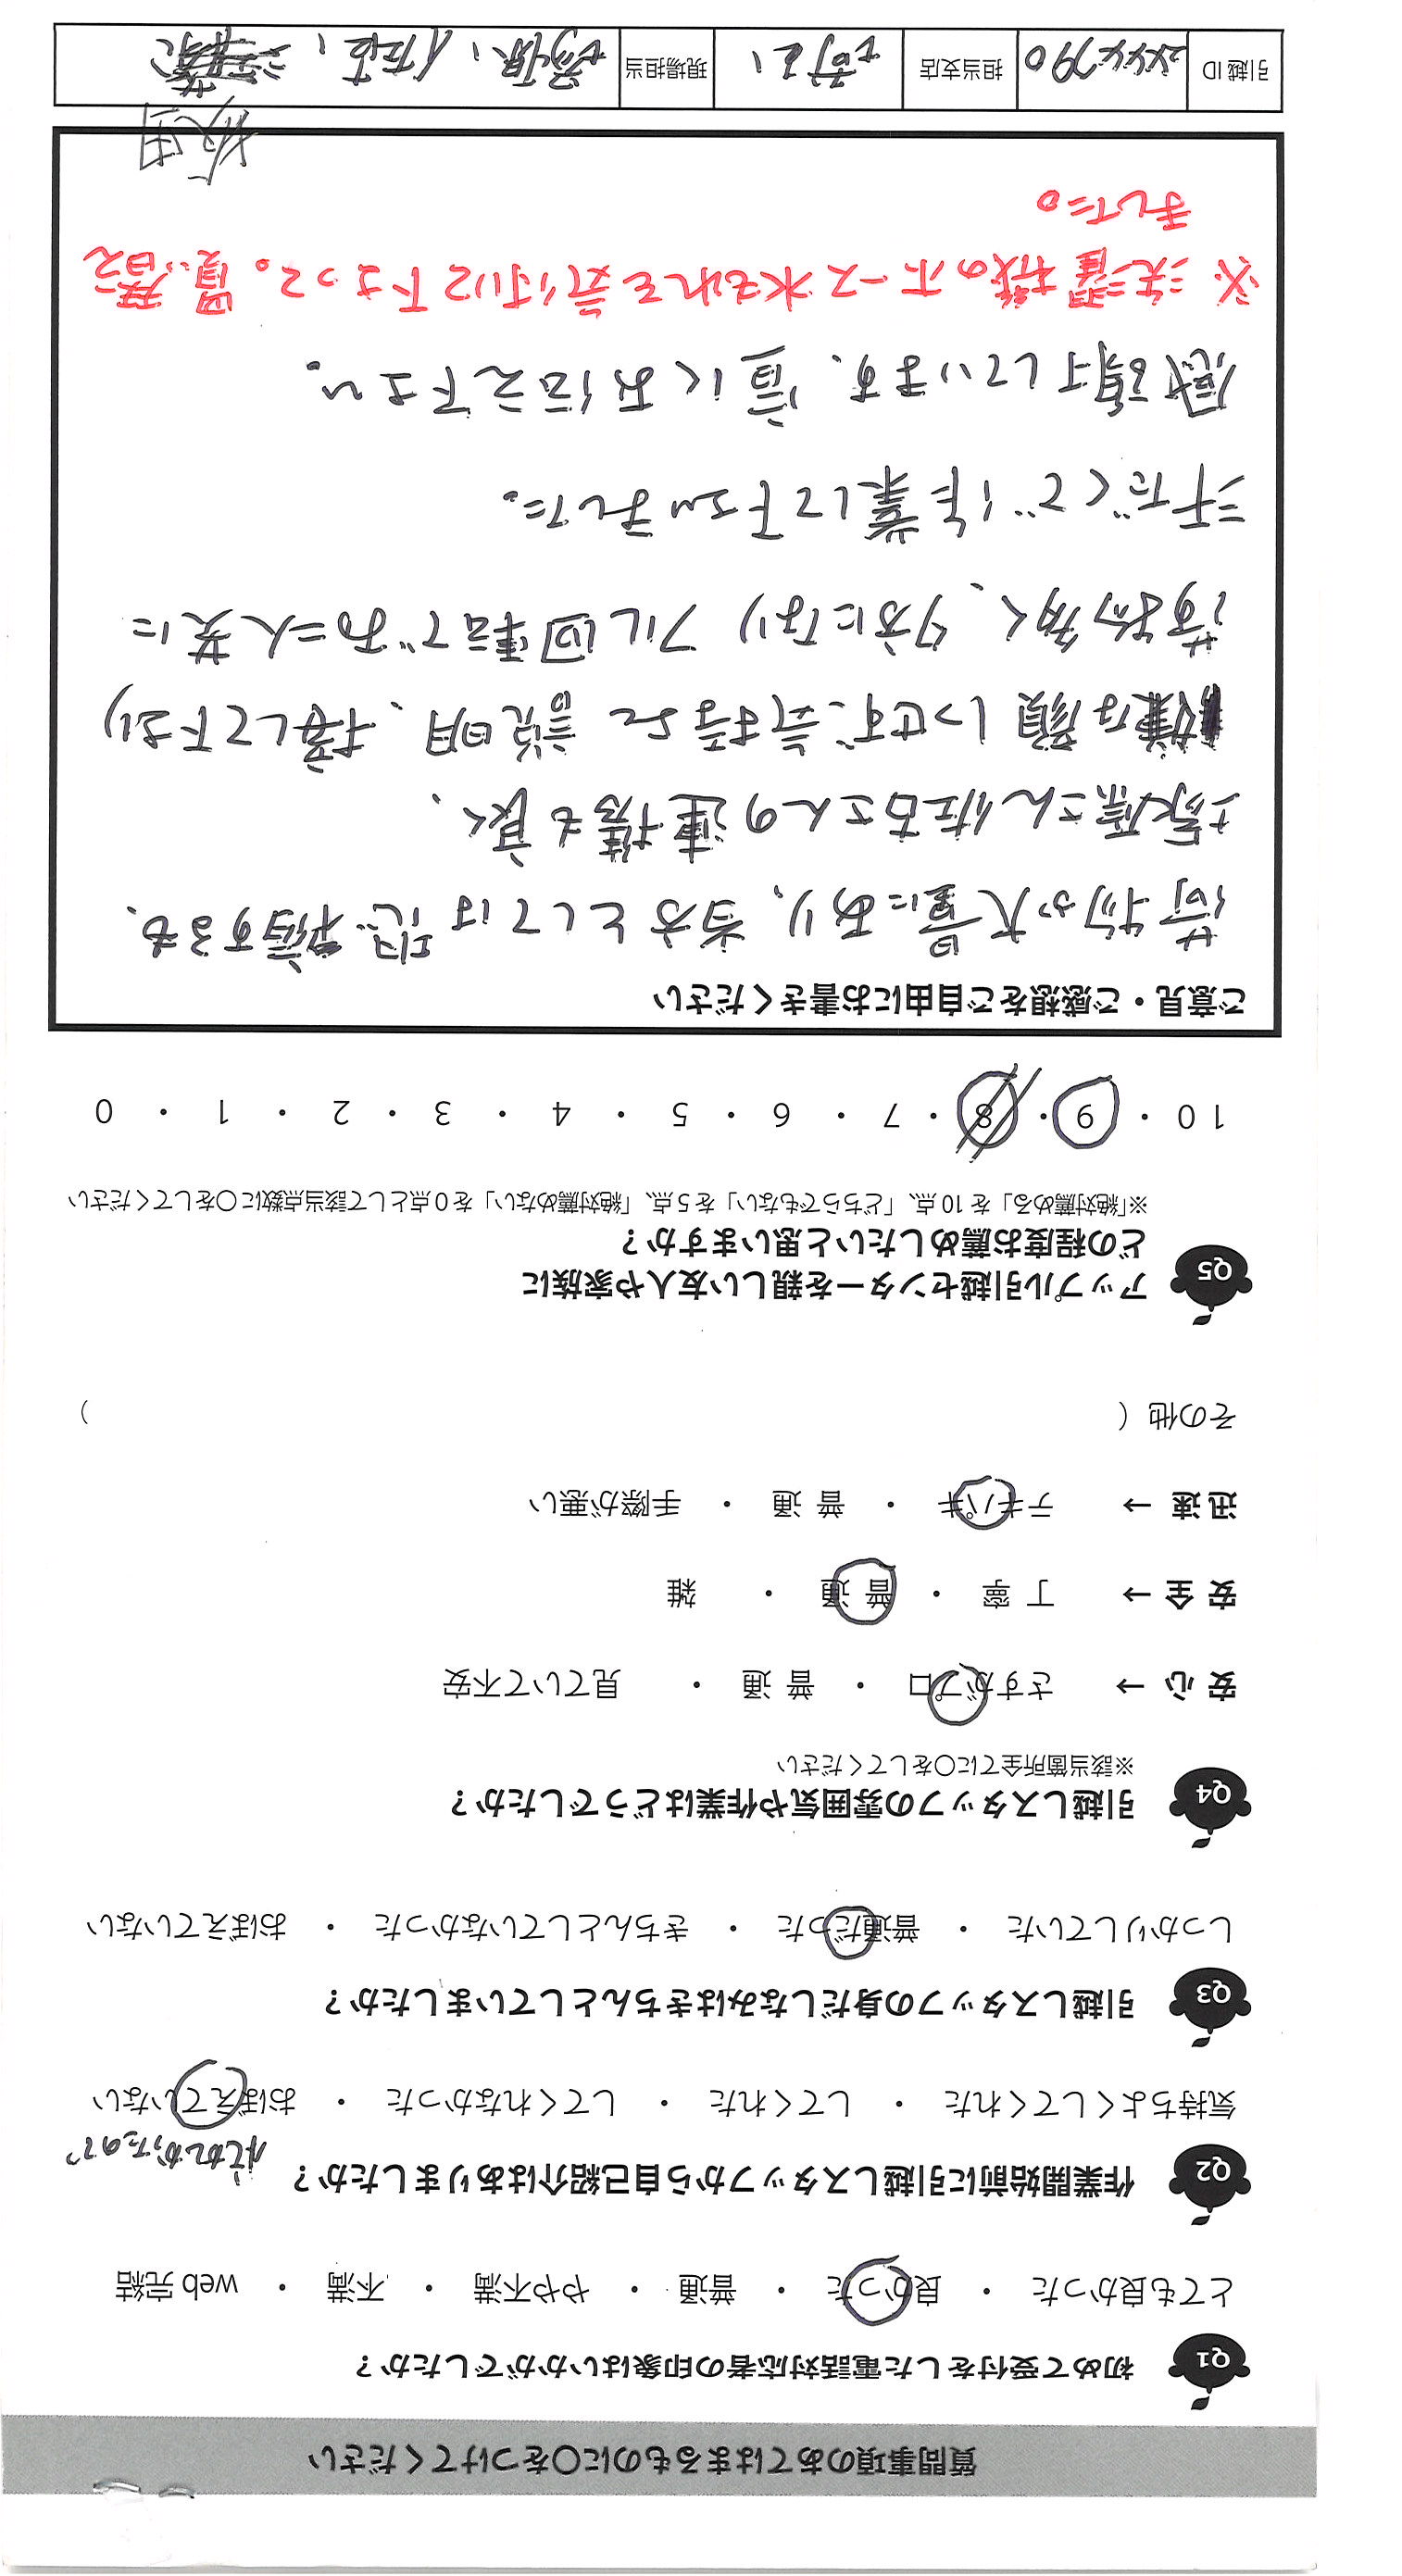 質問事項のあてはまるものに〇をつけてください
Q1 初めて受付をした電話対応者の印象はいかがでしたか？
とても良かった ・ 良かった ・ 普通 ・ やや不満 ・ 不満 ・ web完結
Q2 作業開始前に引越しスタッフから自己紹介はありましたか？
忙しかったので
気持ちよくしてくれた ・ してくれた ・ してくれなかった ・ おぼえていない
Q3 引越しスタッフの身だしなみはきちんとしていましたか？
しっかりしていた ・ 普通だった ・ きちんとしていなかった ・ おぼえていない
Q4 引越しスタッフの雰囲気や作業はどうでしたか？
※該当箇所全てに〇をしてください
安心 → さすがプロ ・ 普通 ・ 見ていて不安
安全 → 丁寧 ・ 普通 ・ 雑
迅速 → テキパキ ・ 普通 ・ 手際が悪い
その他（ ）
Q5 アップル引越センターを親しい友人や家族に
どの程度お薦めしたいと思いますか？
※「絶対薦める」を10点、「どちらでもない」を5点、「絶対薦めない」を0点として該当点数に〇をしてください
10 ・ 9 ・ 8 ・ 7 ・ 6 ・ 5 ・ 4 ・ 3 ・ 2 ・ 1 ・ 0
ご意見・ご感想をご自由にお書きください
荷物が大量にあり、当方としては恐縮するも、
塚原さん佐古さんの連携も良く、
嫌な顔しっせず、気持よく説明、接して下さり
荷物多く、夕方になり フル回転でお二人共に
汗だくで作業して下さいました。
感謝しています、宜しくお伝え下さい。
※洗濯機のホース水もれを気付いて下さって。買い替え
ました。
坂田
引越ID 244790 担当支店 担当 現場担当 佐古